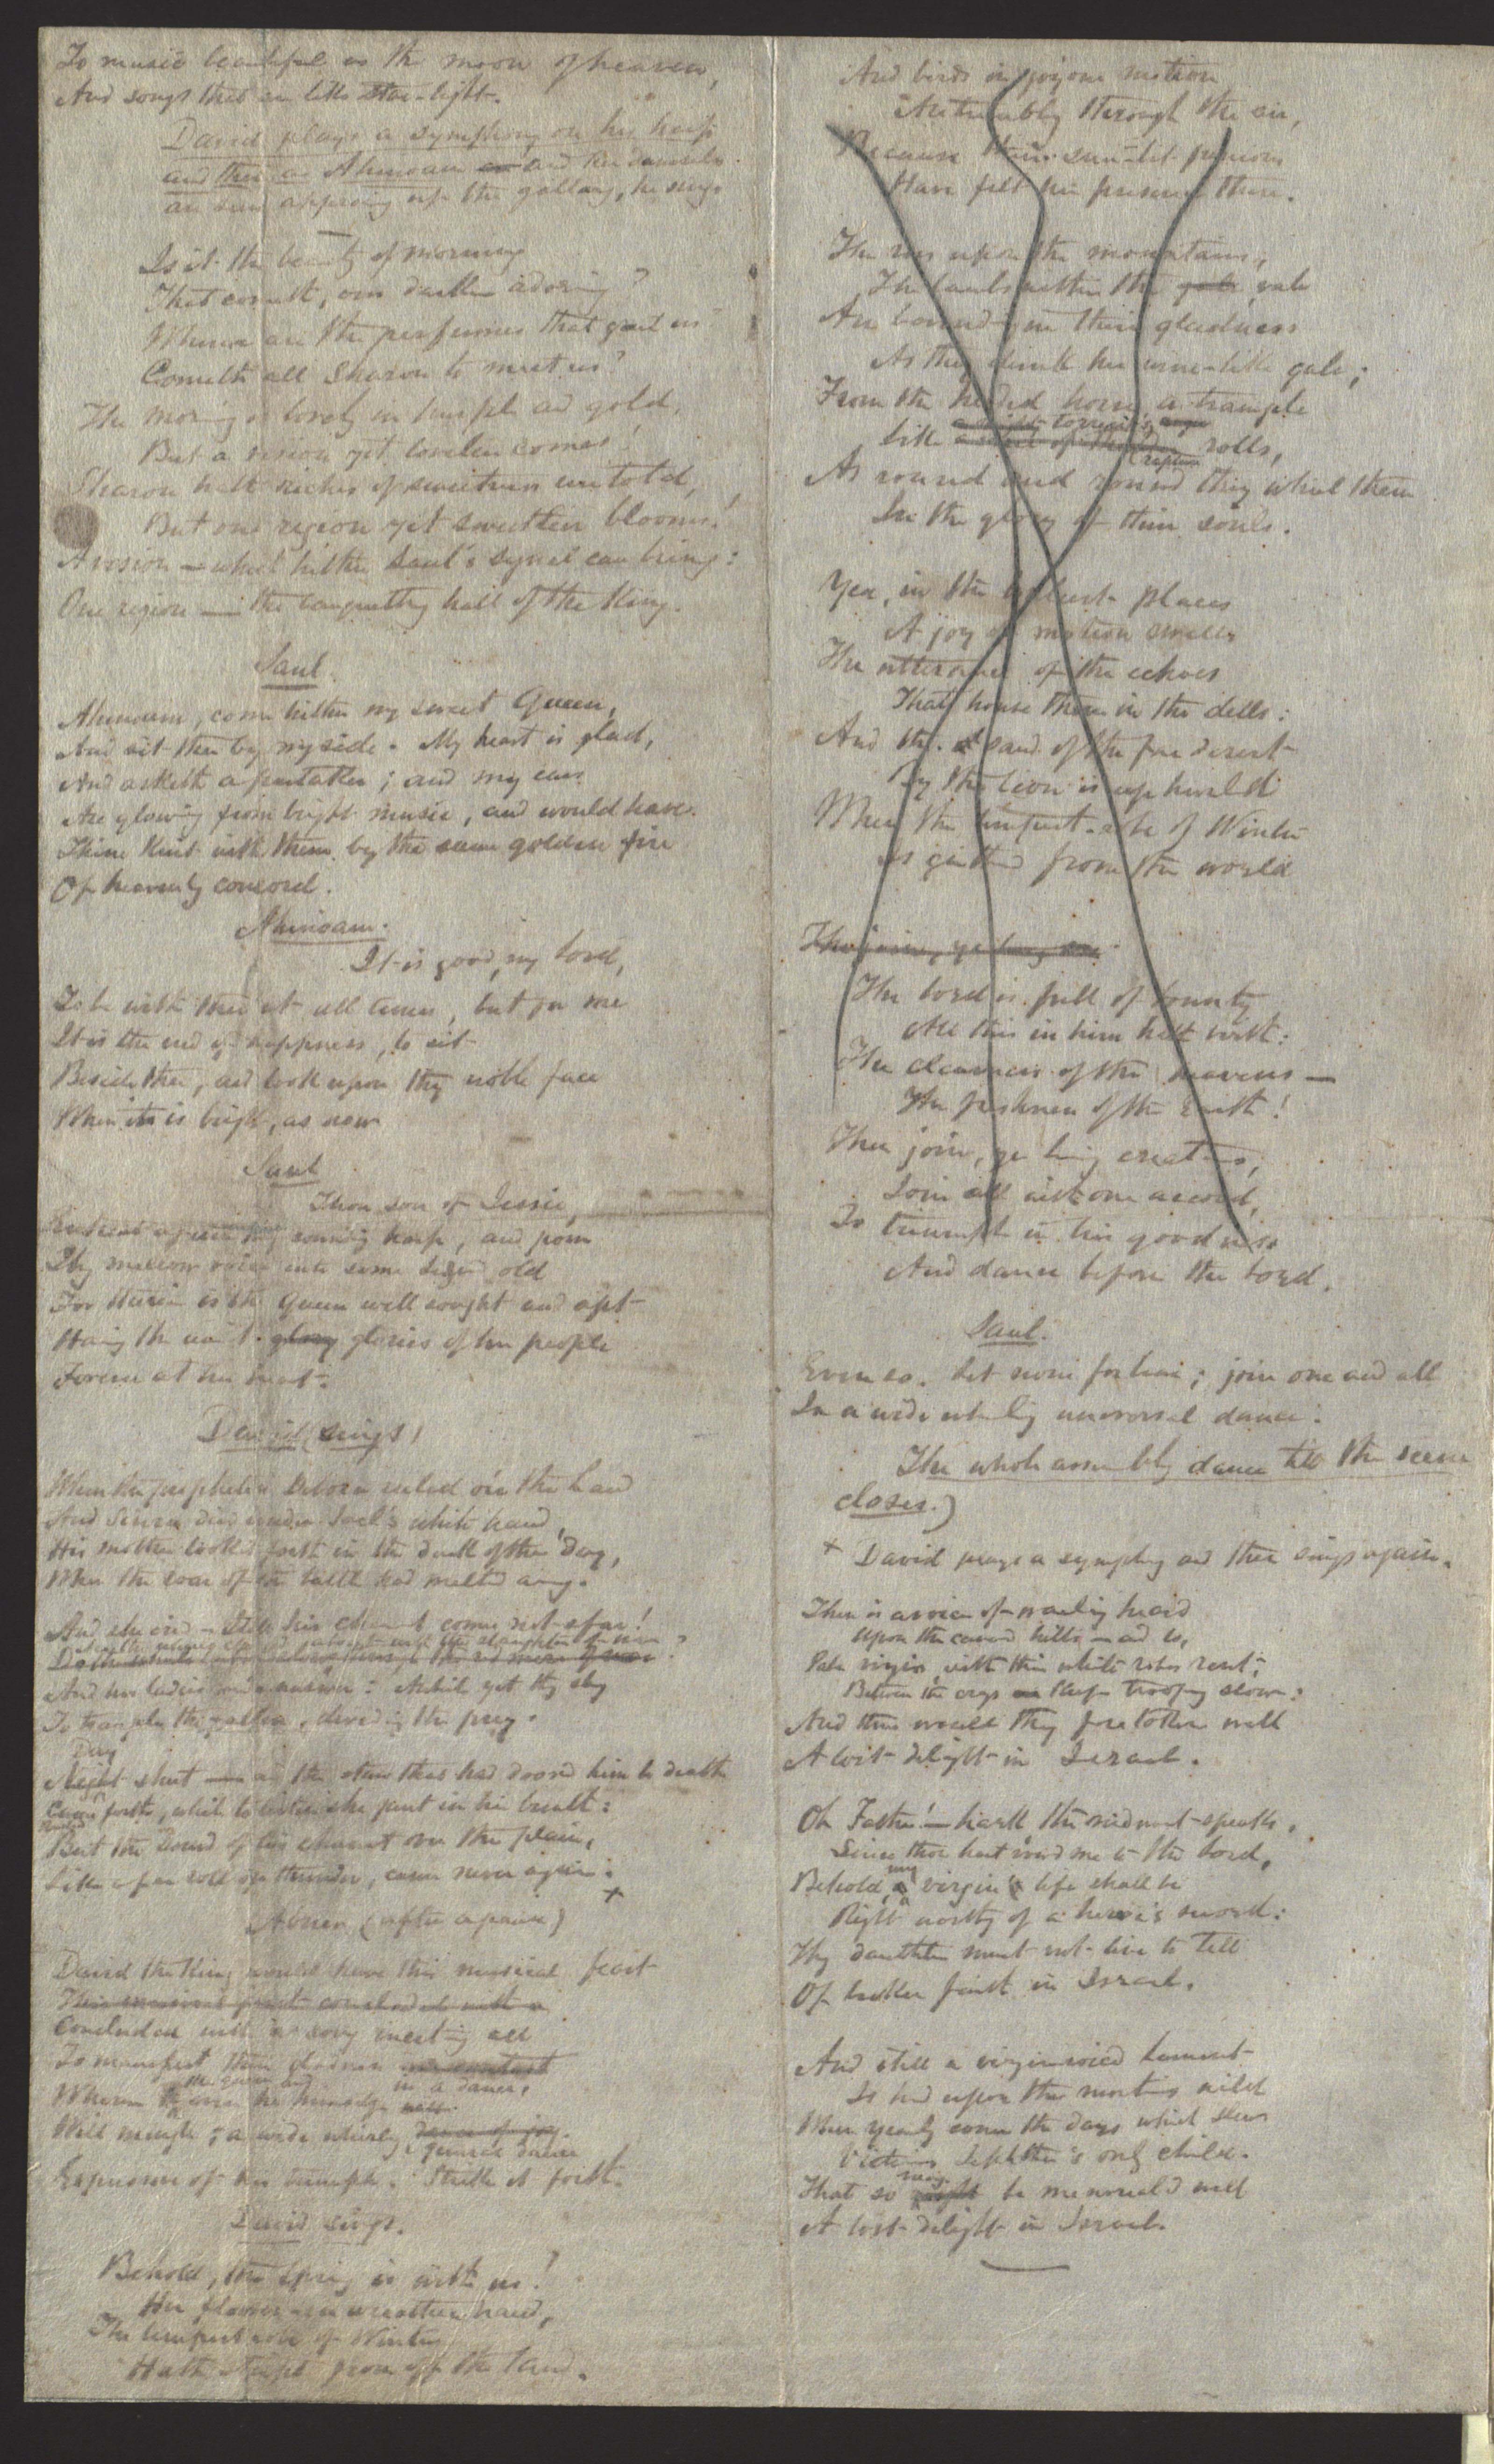 To music beautiful as the moon of heaven,
And songs that are like star-light.
David plays a symphony on his harp
and then as Ahinoam and her damsels
are seen appearing up the gallery, he sings
Is it the beauty of morning
That cometh, our darkness adorning?
Whence are the perfumes that greet us?
Cometh all Sharon to meet us?
The morning is lovely in purple and gold,
But a vision yet lovelier comes!
Sharon hath riches of sweetness untold,
But one region yet sweetlier blooms!
A vision — which hither Saul's signal can bring:
One region — the banquetting hall of the King.
Saul.
Ahinoam, come hither my sweet Queen,
And sit thee by my side. My heart is glad,
And asketh a partaker; and my ears
Are glowing from bright music, and would have
Thine knit with them by the same golden fire
Of heavenly concord.
Ahinoam.
It is good, my lord,
To be with thee at all times, but for me
It is the end of happiness, to sit
Beside thee, and look upon thy noble face
When it is bright, as now
Saul
Thou son of Jessie,
again thy sounding harp, and pour
Thy mellow voice into some legend old
For therein is the Queen well sought and apt
Having the glory glories of her people
Forever at her heart.
David (sings)
When the prophetess Debora ruled o'er the land
And Sisera died under Jael's white hand,
His mother looked forth in the dusk of the day,
When the roar of the battle had melted away.
And she cried — Still his chariot comes not afar!
And her ladies made answer: Awhile yet they stay
To trample the fallen, dividing the prey.
Day
Night shut — and the stars that had doomed him to death
Came forth, while to listen she pent in her breath:
But the sound of his chariot over the plain,
Like a far roll of thunder, came never again: +
Abner (after a pause)
David the King would have this musical feast
This musical feast concluded with a
Concluded with a song inviting all
To manifest their gladness
the queen and in a dance,
Wherein he himself
Will mingle; a wide whirling dance of joy
general dance
Expressive of his triumph. Strike it forth.
David sings.
Behold, the spring is with us!
Her flowers in wreathes hand,
The tempest robe of Winter
Hath stript from off the land.
And birds in joyous motion
Are trembling through the air,
Because their sun-lit pinions
Have felt her presence there.
The roes upon the mountains,
The lambs within the vale
Are bounding in their gladness
As they drink her wine-like gale;
From the herded horses a trample
torrent's
Like rolls,
As round and round they wheel them
In the glory of their souls.
Yea, in the places
A joy of motion swells
The utterance of the echoes
That house them in the dells:
And the sand of the far desert
By the lion is up hurled
When the tempest-robe of Winter
Is gather'd from the world
Then join, ye living
The Lord is full of bounty
All this in him hath birth:
The clearness of the heavens —
The freshness of the Earth!
Then join, ye living creatures,
Join all with one accord,
To triumph in his goodness
And dance before the Lord.
Saul.
Even so. Let none forbear; join one and all
In a wide whirling universal dance.
The whole assembly dance till the scene
closes.)
+ David plays a symphony and then sings again.
There is a voice of wailing heard
Upon the cavern'd hills — and lo,
Pale virgins, with their white robes rent,
Between the crags keep trooping slow:
And thus would they foretoken well
A lost delight in Israel.
Oh Father! — hark the speaks,
Since thou hast vow'd me to the Lord,
my
Behold, a virgin's life shall be
Right worthy of a hero's sword:
Thy daughter must not live to tell
Of broken faith in Israel.
And still a virgin-voiced lament
Is heard upon the mountains wild
When yearly come the days which slew
Victorious Jephtha's only child.
may
That so might be memorial'd well
A lost delight in Israel.